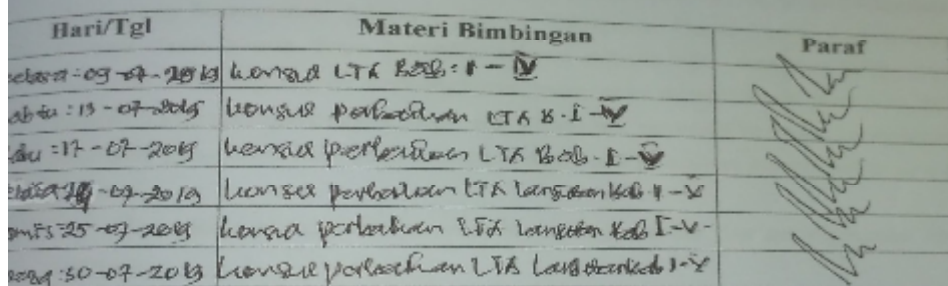 Hari/Tgl Materi Bimbingan Paraf
elasa : 09-07-2019 konsul LTA Bab : I - IV
abtu : 13 - 07-2019 konsul perbaikan LTA B. I - IV
abu : 17 - 07-2019 konsul perbaikan LTA Bab. I - IV
elasa -07-2019 konsul perbaikan LTA Bab I - V
amis 25 -07-2019 konsul perbaikan LTA Bab I - V -
: 30-07-2019 konsul perbaikan LTA I - V